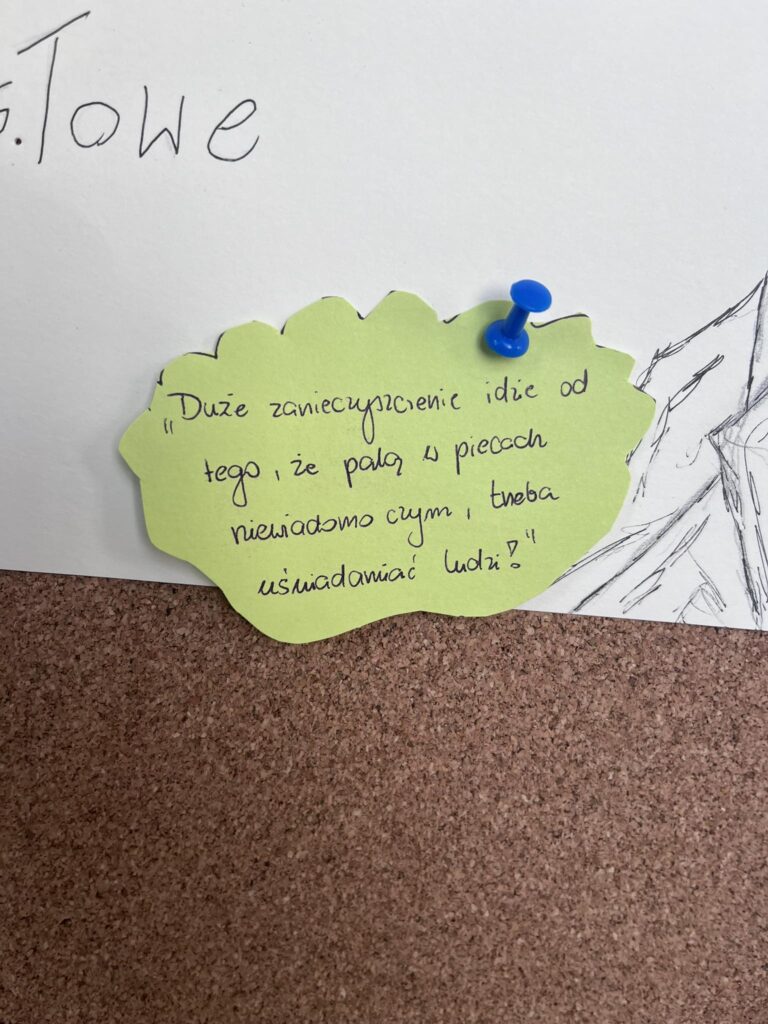 Towe
„Duże zanieczyszczenie idzie od
tego, że palą w piecach
niewiadomo czym, trzeba
uświadamiać ludzi!"